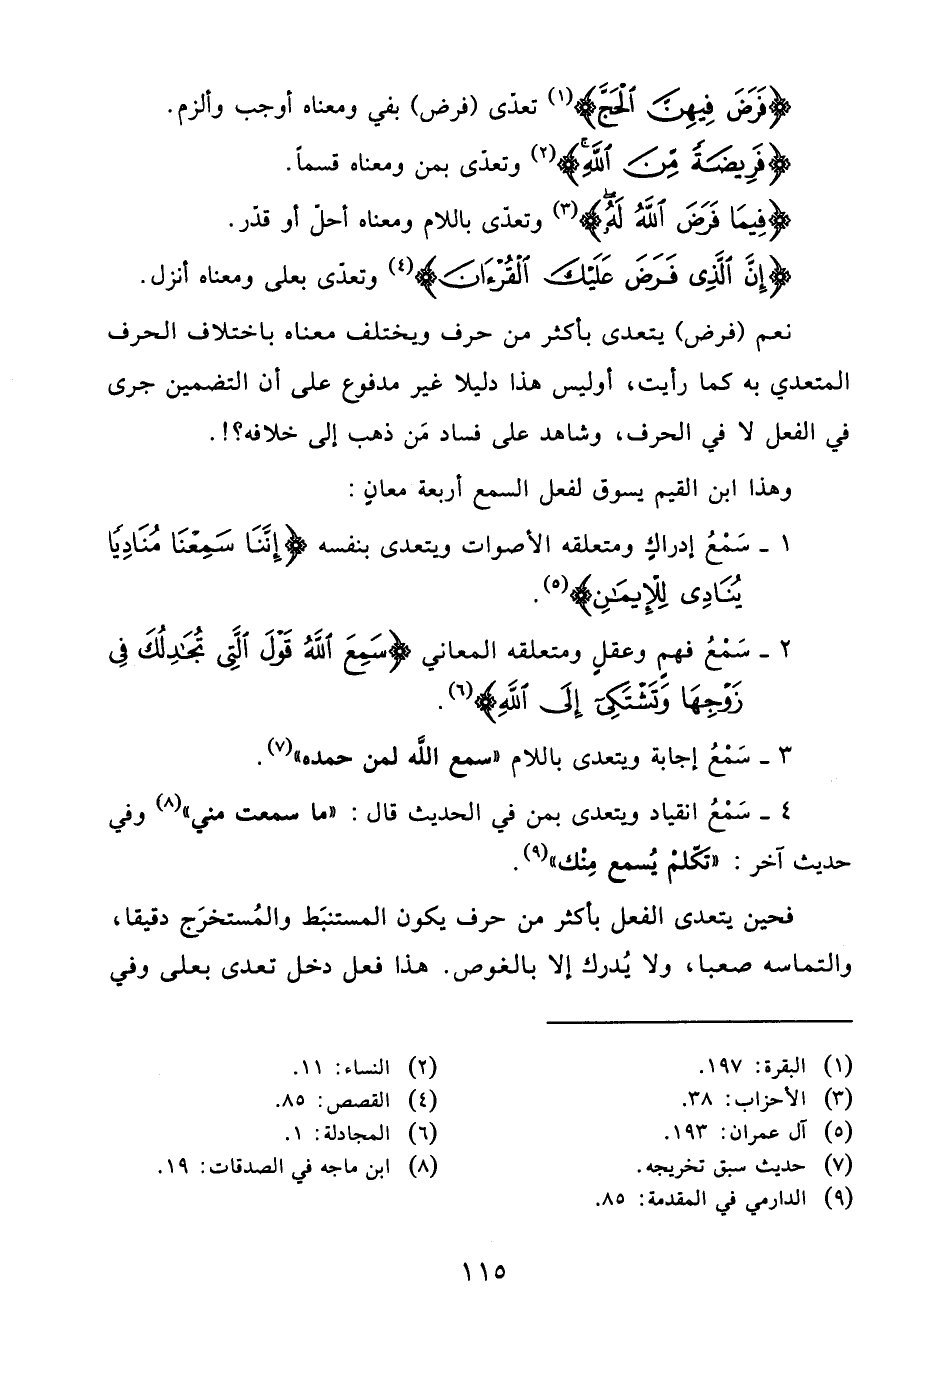 ﴿فَرَضَ فِيهِنَّ ٱلْحَجَّ﴾(١) تعدّى (فرض) بفي ومعناه أوجب وألزم.
﴿فَرِيضَةً مِّنَ ٱللَّهِ﴾(٢) وتعدّى بمن ومعناه قسماً.
﴿فِيمَا فَرَضَ ٱللَّهُ لَهُۥ﴾(٣) وتعدّى باللام ومعناه أحلّ أو قدّر.
﴿إِنَّ ٱلَّذِى فَرَضَ عَلَيْكَ ٱلْقُرْءَانَ﴾(٤) وتعدّى بعلى ومعناه أنزل.
نعم (فرض) يتعدى بأكثر من حرف ويختلف معناه باختلاف الحرف
المتعدي به كما رأيت، أوليس هذا دليلا غير مدفوع على أن التضمين جرى
في الفعل لا في الحرف، وشاهد على فساد مَن ذهب إلى خلافه؟!.
وهذا ابن القيم يسوق لفعل السمع أربعة معانٍ:
١ ـ سَمْعُ إدراكٍ ومتعلقه الأصوات ويتعدى بنفسه ﴿إِنَّنَا سَمِعْنَا مُنَادِيًا
يُنَادِى لِلْإِيمَٰنِ﴾(٥).
٢ ـ سَمْعُ فهمٍ وعقلٍ ومتعلقه المعاني ﴿سَمِعَ ٱللَّهُ قَوْلَ ٱلَّتِى تُجَٰدِلُكَ فِى
زَوْجِهَا وَتَشْتَكِىٓ إِلَى ٱللَّهِ﴾(٦).
٣ ـ سَمْعُ إجابة ويتعدى باللام «سمع اللَّه لمن حمده»(٧).
٤ ـ سَمْعُ انقياد ويتعدى بمن في الحديث قال: «ما سمعت مني»(٨) وفي
حديث آخر: «تَكَّلمْ يُسمع مِنْك»(٩).
فحين يتعدى الفعل بأكثر من حرف يكون المستنبَط والمُستخرَج دقيقا،
والتماسه صعبا، ولا يُدرك إلا بالغوص. هذا فعل دخل تعدى بعلى وفي
(١) البقرة: ١٩٧.
(٢) النساء: ١١.
(٣) الأحزاب: ٣٨.
(٤) القصص: ٨٥.
(٥) آل عمران: ١٩٣.
(٦) المجادلة: ١.
(٧) حديث سبق تخريجه.
(٨) ابن ماجه في الصدقات: ١٩.
(٩) الدارمي في المقدمة: ٨٥.
١١٥